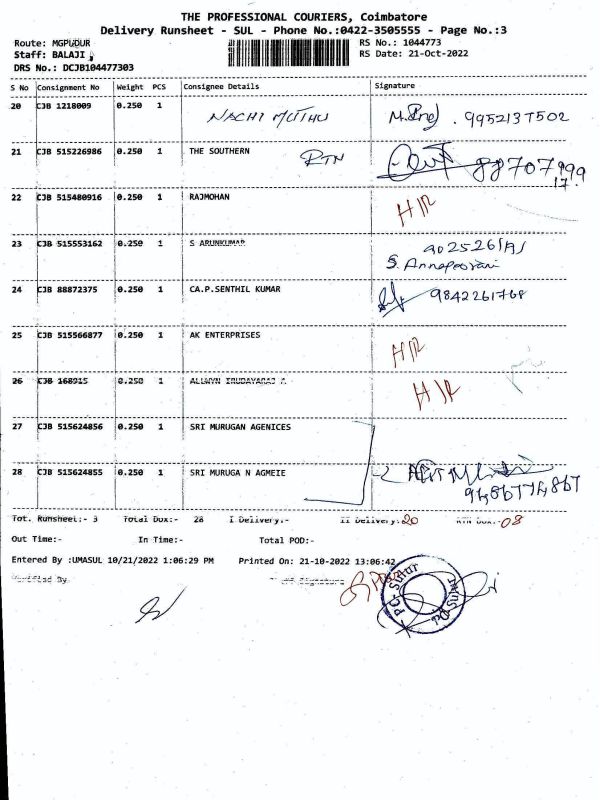 THE PROFESSIONAL COURIERS, Coimbatore
Delivery Runsheet - SUL - Phone No.:0422-3505555 - Page No.:3
Route: MGPUDUR RS No.: 1044773
Staff: BALAJI RS Date: 21-Oct-2022
DRS No.: DCJB104477303
S No Consignment No Weight PCS Consignee Details Signature
20 CJB 1218009 0.250 1 NACHI MUTHU 9952137502
21 CJB 515226986 0.250 1 THE SOUTHERN RTN 88707999
17
22 CJB 515480916 0.250 1 RAJMOHAN H/R
23 CJB 515553162 0.250 1 S ARUNKUMAR
S. Annapoorani
24 CJB 88872375 0.250 1 CA.P.SENTHIL KUMAR 9842261768
25 CJB 515566877 0.250 1 AK ENTERPRISES H/R
26 CJB 168915 0.250 1 ALLWYN IRUDAYARAJ H/R
27 CJB 515624856 0.250 1 SRI MURUGAN AGENICES
28 CJB 515624855 0.250 1 SRI MURUGA N AGMEIE
9486774867
Tot. Runsheet:- 3 Total Dox:- 28 I Delivery:- II Delivery:- 20 RTN Dox:- 08
Out Time:- In Time:- Total POD:-
Entered By :UMASUL 10/21/2022 1:06:29 PM Printed On: 21-10-2022 13:06:42
Verified By Staff Signature
PC-Sulur
PC-Sulur